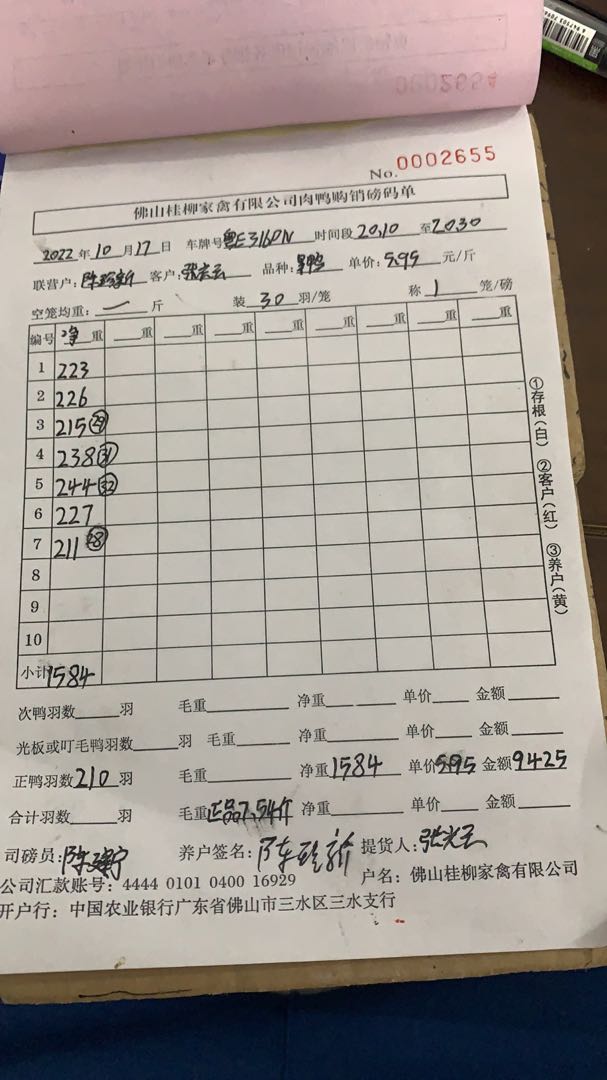 0002654
No. 0002655
佛山桂柳家禽有限公司肉鸭购销磅码单
2022年10月17日 车牌号粤E3160N 时间段20,10至2030
联营户: 客户:张 品种: 单价:5.95元/斤
空笼均重:一斤 装30羽/笼 称1笼/磅
编号 净重 重 重 重 重 重 重 重 重
1 223
2 226
3 215 29
4 238 31
5 244 32
6 227
7 211 28
8
9
10
小计 1584
①存根(白) ②客户(红) ③养户(黄)
次鸭羽数 羽 毛重 净重 单价 金额
光板或叮毛鸭羽数 羽 毛重 净重 单价 金额
正鸭羽数210羽 毛重 净重1584 单价5.95 金额9425
合计羽数 羽 毛重正品7.54斤 净重 单价 金额
司磅员:陈 养户签名:陈 提货人:张
公司汇款账号: 4444 0101 0400 16929 户名: 佛山桂柳家禽有限公司
开户行: 中国农业银行广东省佛山市三水区三水支行